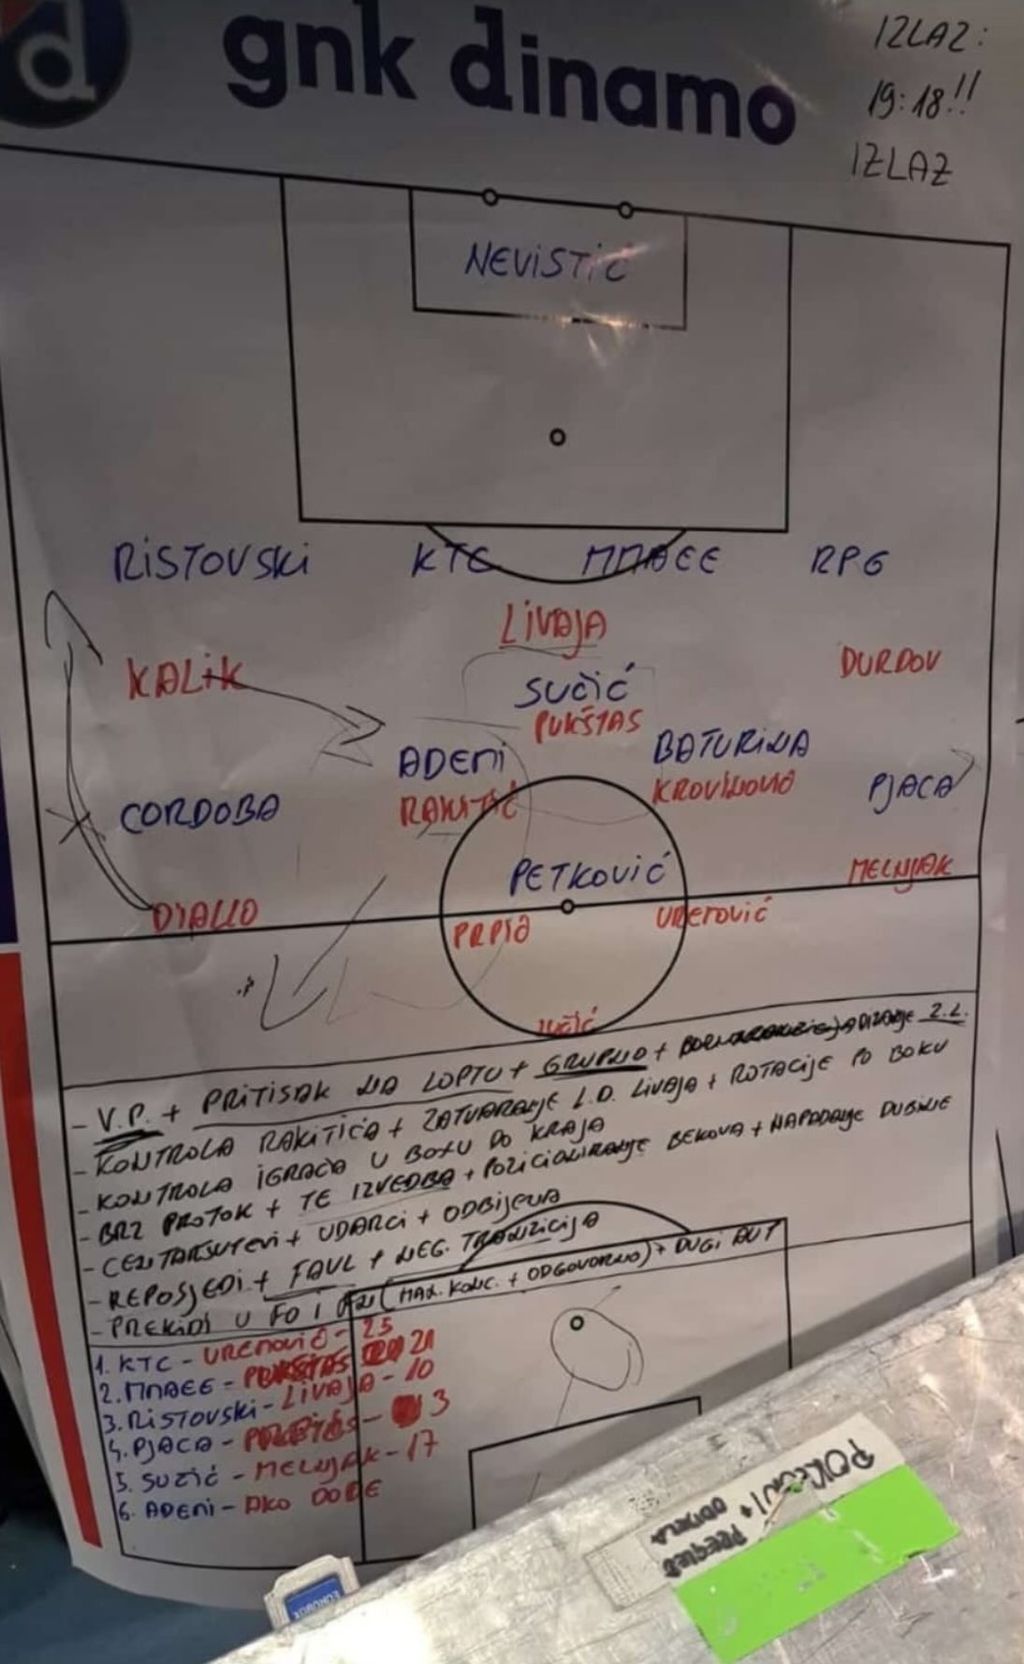 d
gnk dinamo
IZLAZ:
19:18!!
IZLAZ
NEVISTIĆ
RISTOVSKI KTC RPG
LIVAJA
KALIK DURDOV
SUČIĆ
PUKŠTAS
ADEMI BATURINA
RAKITIĆ KROVINOVIĆ
CORDOBA PJACA
PETKOVIĆ
DIALLO MELNJAK
PRPIĆ UREMOVIĆ
LUČIĆ
- V.P. + PRITISAK NA LOPTU + GRUPNO + 2.L.
- KONTROLA RAKITIĆA + ZATVARANJE L.D. LIVAJA + ROTACIJE PO BOKU
- KONTROLA IGRAČA U BOXU DO KRAJA
- BRZ PROTOK + TE IZVEDBA + POZICIONIRANJE BEKOVA + NAPADANJE DUBINE
- CENTARŠUTEVI + UDARCI + ODBIJENA
- REPOSJEDI + FAUL + NEG. TRANZICIJA
- PREKIDI U FO I (MAX. KONC. + ODGOVORNO) + DUGI AUT
1. KTC - UREMOVIĆ - 25
2. - 21
3. RISTOVSKI - LIVAJA - 10
4. PJACA - 3
5. SUČIĆ - MELNJAK - 17
6. ADEMI - AKO DOĐE
POKLONI +
ODIJELA